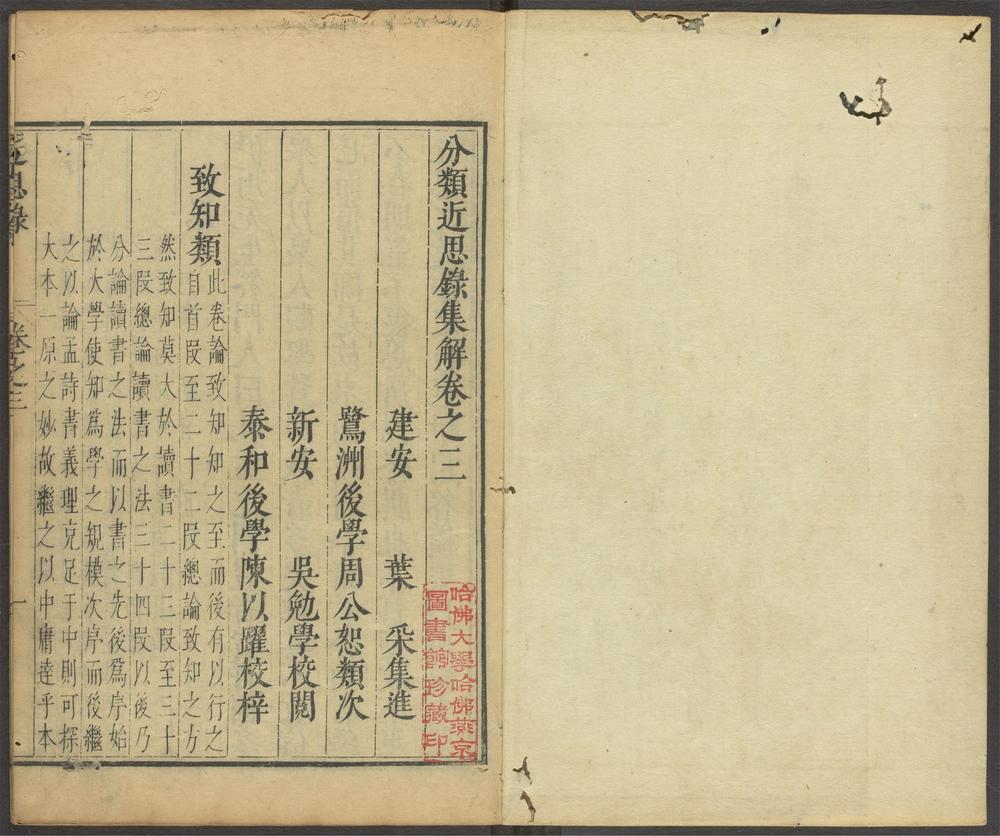 分類近思錄集解卷之三
建安 葉 采集進
鷺洲後學周公恕類次
新安 吳勉學校閱
泰和後學陳以躍校梓
致知類
此卷論致知知之至而後有以行之
自首段至二十二段總論致知之方
然致知莫大於讀書二十三段至三十
三段總論讀書之法三十四段以後乃
分論讀書之法而以書之先後爲序始
於大學使知爲學之規模次序而後繼
之以論孟詩書義理充足于中則可探
大本一原之妙故繼之以中庸達乎本
近思錄 卷之三 一
哈佛大學哈佛燕京
圖書館珍藏印